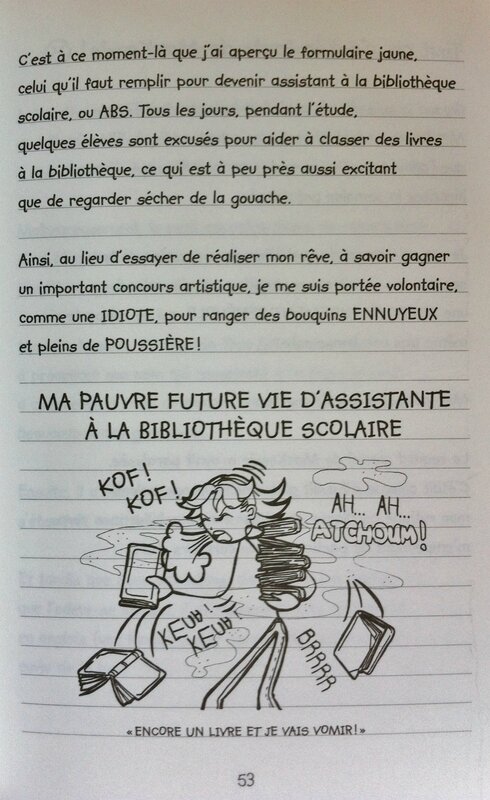 C'est à ce moment-là que j'ai aperçu le formulaire jaune,
celui qu'il faut remplir pour devenir assistant à la bibliothèque
scolaire, ou ABS. Tous les jours, pendant l'étude,
quelques élèves sont excusés pour aider à classer des livres
à la bibliothèque, ce qui est à peu près aussi excitant
que de regarder sécher de la gouache.
Ainsi, au lieu d'essayer de réaliser mon rêve, à savoir gagner
un important concours artistique, je me suis portée volontaire,
comme une IDIOTE, pour ranger des bouquins ENNUYEUX
et pleins de POUSSIÈRE!
MA PAUVRE FUTURE VIE D'ASSISTANTE
À LA BIBLIOTHÈQUE SCOLAIRE
KOF!
KOF!
AH... AH...
ATCHOUM!
KEUH!
KEUH!
BRRRR
« ENCORE UN LIVRE ET JE VAIS VOMIR! »
53